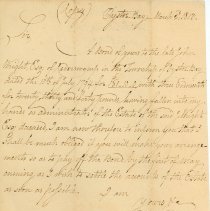 (Copy) Oyster Bay March 3, 1812
Sir,
A Bond of yours to the late John
Wright Esq of Cedarswamp in the Township of Oyster Bay
dated the of July for Dollars with three
for twenty, thirty and forty pounds, having fallen into my
hands as administrator of the Estate of the said Wright
Esq deceased, I am now therefore to inform you that I
shall be much obliged if you will make your arrange-
ments so as to pay off the Bond by the first of May
ensuing as I wish to settle the accounts of the Estate
as soon as possible.
I am
Yours &c